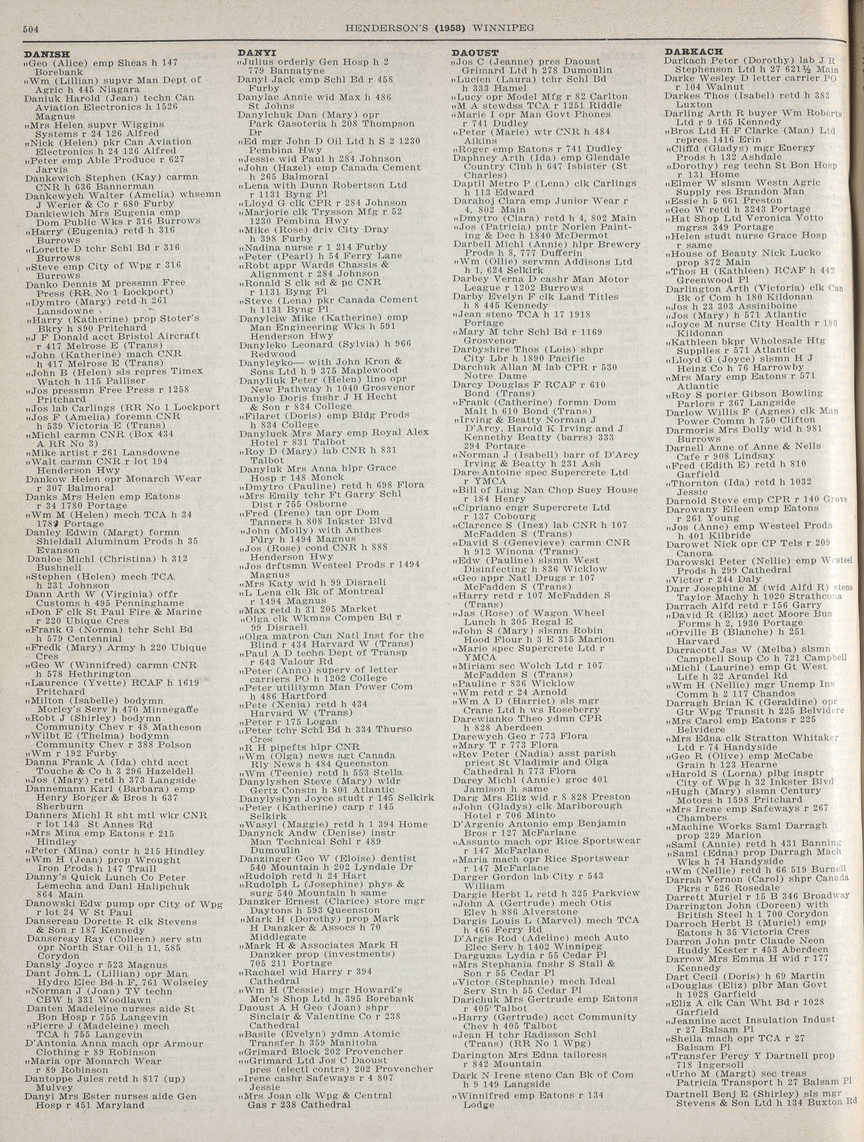 504
HENDERSON'S (1958) WINNIPEG
DANISH
"Geo (Alice) emp Sheas h 147
Borebank
"Wm (Lillian) supvr Man Dept of
Agric h 445 Niagara
Daniuk Harold (Jean) techn Can
Aviation Electronics h 1526
Magnus
"Mrs Helen supvr Wiggins
Systems r 24 126 Alfred
"Nick (Helen) pkr Can Aviation
Electronics h 24 126 Alfred
"Peter emp Able Produce r 627
Jarvis
Dankewich Stephen (Kay) carmn
CNR h 636 Bannerman
Dankewych Walter (Amelia) whsemn
J Werier & Co r 680 Furby
Dankiewich Mrs Eugenia emp
Dom Public Wks r 316 Burrows
"Harry (Eugenia) retd h 316
Burrows
"Lorette D tchr Schl Bd r 316
Burrows
"Steve emp City of Wpg r 316
Burrows
Danko Dennis M pressmn Free
Press (RR No 1 Lockport)
"Dymtro (Mary) retd h 261
Lansdowne
"Harry (Katherine) prop Stoter's
Bkry h 890 Pritchard
"J F Donald acct Bristol Aircraft
r 417 Melrose E (Trans)
"John (Katherine) mach CNR
h 417 Melrose E (Trans)
"John B (Helen) sls repres Timex
Watch h 115 Palliser
"Jos pressmn Free Press r 1258
Pritchard
"Jos lab Carlings (RR No 1 Lockport
"Jos F (Amelia) foremn CNR
h 539 Victoria E (Trans)
"Michl carmn CNR (Box 434
A RR No 3)
"Mike artist r 261 Lansdowne
"Walt carmn CNR r lot 194
Henderson Hwy
Dankow Helen opr Monarch Wear
r 307 Balmoral
Danks Mrs Helen emp Eatons
r 34 1780 Portage
"Wm M (Helen) mech TCA h 34
1780 Portage
Danley Edwin (Margt) formn
Shieldall Aluminum Prods h 35
Evanson
Danloe Michl (Christina) h 312
Bushnell
"Stephen (Helen) mech TCA
h 231 Johnson
Dann Arth W (Virginia) offr
Customs h 495 Penninghame
"Don F clk St Paul Fire & Marine
r 220 Ubique Cres
"Frank G (Norma) tchr Schl Bd
h 579 Centennial
"Fredk (Mary) Army h 220 Ubique
Cres
"Geo W (Winnifred) carmn CNR
h 578 Hethrington
"Laurence (Yvette) RCAF h 1619
Pritchard
"Milton (Isabelle) bodymn
Morley's Serv h 470 Minnegaffe
"Robt J (Shirley) bodymn
Community Chev r 48 Matheson
"Wilbt E (Thelma) bodymn
Community Chev r 388 Polson
"Wm r 192 Furby
Danna Frank A (Ida) chtd acct
Touche & Co h 3 296 Hazeldell
"Jos (Mary) retd h 373 Langside
Dannemann Karl (Barbara) emp
Henry Borger & Bros h 637
Sherburn
Danners Michl R sht mtl wkr CNR
r lot 143 St Annes Rd
"Mrs Mina emp Eatons r 215
Hindley
"Peter (Mina) contr h 215 Hindley
"Wm H (Jean) prop Wrought
Iron Prods h 147 Traill
Danny's Quick Lunch Co Peter
Lemecha and Danl Halipchuk
864 Main
Danowski Edw pump opr City of Wpg
r lot 24 W St Paul
Dansereau Dorette R clk Stevens
& Son r 187 Kennedy
Dansereay Ray (Colleen) serv stn
opr North Star Oil h 11, 585
Corydon
Dansly Joyce r 523 Magnus
Dant John L (Lillian) opr Man
Hydro Elec Bd h F, 761 Wolseley
"Norman J (Joan) TV techn
CBW h 331 Woodlawn
Danten Madeleine nurses aide St
Bon Hosp r 755 Langevin
"Pierre J (Madeleine) mech
TCA h 755 Langevin
D'Antonia Anna mach opr Armour
Clothing r 89 Robinson
"Maria opr Monarch Wear
r 89 Robinson
Dantoppe Jules retd h 817 (up)
Mulvey
Danyi Mrs Ester nurses aide Gen
Hosp r 451 Maryland
DANYI
"Julius orderly Gen Hosp h 2
779 Bannatyne
Danyl Jack emp Schl Bd r 458
Furby
Danylac Annie wid Max h 486
St Johns
Danylchuk Dan (Mary) opr
Park Gasoteria h 208 Thompson
Dr
"Ed mgr John D Oil Ltd h S 2 1230
Pembina Hwy
"Jessie wid Paul h 284 Johnson
"John (Hazel) emp Canada Cement
h 265 Balmoral
"Lena with Dunn Robertson Ltd
r 1131 Byng Pl
"Lloyd G clk CPR r 284 Johnson
"Marjorie clk Trysson Mfg r 52
1230 Pembina Hwy
"Mike (Rose) driv City Dray
h 398 Furby
"Nadina nurse r 1 214 Furby
"Peter (Pearl) h 54 Ferry Lane
"Robt appr Wards Chassis &
Alignment r 284 Johnson
"Ronald S clk sd & pc CNR
r 1131 Byng Pl
"Steve (Lena) pkr Canada Cement
h 1131 Byng Pl
Danyleiw Mike (Katherine) emp
Man Engineering Wks h 591
Henderson Hwy
Danyleko Leonard (Sylvia) h 966
Redwood
Danyleyko— with John Kron &
Sons Ltd h 9 375 Maplewood
Danyliuk Peter (Helen) lino opr
New Pathway h 1040 Grosvenor
Danylo Doris fnshr J H Hecht
& Son r 834 College
"Filaret (Doris) emp Bldg Prods
h 834 College
Danyluck Mrs Mary emp Royal Alex
Hotel r 831 Talbot
"Roy D (Mary) lab CNR h 831
Talbot
Danyluk Mrs Anna hlpr Grace
Hosp r 148 Monck
"Dmytro (Pauline) retd h 698 Flora
"Mrs Emily tchr Ft Garry Schl
Dist r 755 Osborne
"Fred (Irene) tan opr Dom
Tanners h 808 Inkster Blvd
"John (Molly) with Anthes
Fdry h 1494 Magnus
"Jos (Rose) cond CNR h 888
Henderson Hwy
"Jos drftsmn Westeel Prods r 1494
Magnus
"Mrs Katy wid h 99 Disraeli
"L Lena clk Bk of Montreal
r 1494 Magnus
"Max retd h 31 205 Market
"Olga clk Wkmns Compen Bd r
99 Disraeli
"Olga matron Can Natl Inst for the
Blind r 434 Harvard W (Trans)
"Paul A D techn Dept of Transp
r 643 Valour Rd
"Peter (Anne) superv of letter
carriers PO h 1202 College
"Peter utilitymn Man Power Com
h 486 Hartford
"Pete (Xenia) retd h 434
Harvard W (Trans)
"Peter r 175 Logan
"Peter tchr Schl Bd h 334 Thurso
Cres
"R H pipefts hlpr CNR
"Wm (Olga) news agt Canada
Rly News h 484 Queenston
"Wm (Teenie) retd h 553 Stella
Danylyshen Steve (Mary) wldr
Gertz Constn h 801 Atlantic
Danylyshyn Joyce studt r 145 Selkirk
"Peter (Katherine) carp r 145
Selkirk
"Wasyl (Maggie) retd h 1 394 Home
Danynck Andw (Denise) instr
Man Technical Schl r 489
Dumoulin
Danzinger Geo W (Eloise) dentist
540 Mountain h 202 Lyndale Dr
"Rudolph retd h 24 Hart
"Rudolph L (Josephine) phys &
surg 540 Mountain h same
Danzker Ernest (Clarice) store mgr
Daytons h 593 Queenston
"Mark H (Dorothy) prop Mark
H Danzker & Assocs h 70
Middlegate
"Mark H & Associates Mark H
Danzker prop (investments)
705 211 Portage
"Rachael wid Harry r 394
Cathedral
"Wm H (Tessie) mgr Howard's
Men's Shop Ltd h 395 Borebank
Daoust A H Geo (Joan) shpr
Sinclair & Valentine Co r 238
Cathedral
"Basile (Evelyn) ydmn Atomic
Transfer h 359 Manitoba
"Grimard Block 202 Provencher
""Grimard Ltd Jos C Daoust
pres (electl contrs) 202 Provencher
"Irene cashr Safeways r 4 807
Jessie
"Mrs Joan clk Wpg & Central
Gas r 238 Cathedral
DAOUST
"Jos C (Jeanne) pres Daoust
Grimard Ltd h 278 Dumoulin
"Lucien (Laura) tchr Schl Bd
h 333 Hamel
"Lucy opr Model Mfg r 82 Carlton
"M A stewdss TCA r 1251 Riddle
"Marie I opr Man Govt Phones
r 741 Dudley
"Peter (Marie) wtr CNR h 484
Aikins
"Roger emp Eatons r 741 Dudley
Daphney Arth (Ida) emp Glendale
Country Club h 647 Isbister (St
Charles)
Daptil Metro P (Lena) clk Carlings
h 113 Edward
Darahoj Clara emp Junior Wear r
4, 802 Main
"Dmytro (Clara) retd h 4, 802 Main
"Jos (Patricia) pntr Norlen Paint-
ing & Dec h 1840 McDermot
Darbell Michl (Annie) hlpr Brewery
Prods h 8, 777 Dufferin
"Wm (Ollie) servmn Addisons Ltd
h 1, 624 Selkirk
Darbey Verna D cashr Man Motor
League r 1202 Burrows
Darby Evelyn F clk Land Titles
h 8 445 Kennedy
"Jean steno TCA h 17 1918
Portage
"Mary M tchr Schl Bd r 1169
Grosvenor
Darbyshire Thos (Lois) shpr
City Lbr h 1890 Pacific
Darchuk Allan M lab CPR r 530
Notre Dame
Darcy Douglas F RCAF r 610
Bond (Trans)
"Frank (Catherine) formn Dom
Malt h 610 Bond (Trans)
"Irving & Beatty Norman J
D'Arcy, Harold K Irving and J
Kennethy Beatty (barrs) 333
294 Portage
"Norman J (Isabell) barr of D'Arcy
Irving & Beatty h 231 Ash
Dare Antoine spec Supercrete Ltd
r YMCA
"Bill of Ling Nan Chop Suey House
r 184 Henry
"Cipriano engr Supercrete Ltd
r 137 Cobourg
"Clarence S (Inez) lab CNR h 107
McFadden S (Trans)
"David S (Genevieve) carmn CNR
h 912 Winona (Trans)
"Edw (Pauline) slsmn West
Disinfecting h 836 Wicklow
"Geo appr Natl Drugs r 107
McFadden S (Trans)
"Harry retd r 107 McFadden S
(Trans)
"Jas (Rose) of Wagon Wheel
Lunch h 305 Regal E
"John S (Mary) slsmn Robin
Hood Flour h 3 E 315 Marion
"Mario spec Supercrete Ltd r
YMCA
"Miriam sec Wolch Ltd r 107
McFadden S (Trans)
"Pauline r 836 Wicklow
"Wm retd r 24 Arnold
"Wm A D (Harriet) sls mgr
Crane Ltd h ws Roseberry
Darewianko Theo ydmn CPR
h 828 Aberdeen
Darewych Geo r 773 Flora
"Mary T r 773 Flora
"Rev Peter (Nadia) asst parish
priest St Vladimir and Olga
Cathedral h 773 Flora
Darey Michl (Annie) groc 401
Jamison h same
Darg Mrs Eliz wid r 8 828 Preston
"John (Gladys) clk Marlborough
Hotel r 706 Minto
D'Argenio Antonio emp Benjamin
Bros r 127 McFarlane
"Assunto mach opr Rice Sportswear
r 147 McFarlane
"Maria mach opr Rice Sportswear
r 147 McFarlane
Darger Gordon lab City r 543
William
Dargie Herbt L retd h 325 Parkview
"John A (Gertrude) mech Otis
Elev h 886 Alverstone
Dargis Louis L (Marvel) mech TCA
h 466 Ferry Rd
D'Argis Rod (Adeline) mech Auto
Elec Serv h 1402 Winnipeg
Darguzas Lydia r 55 Cedar Pl
"Mrs Stephania fnshr S Stall &
Son r 55 Cedar Pl
"Victor (Stephanie) mech Ideal
Serv Stn h 55 Cedar Pl
Darichuk Mrs Gertrude emp Eatons
r 405 Talbot
"Harry (Gertrude) acct Community
Chev h 405 Talbot
"Jean H tchr Radisson Schl
(Trans) (RR No 1 Wpg)
Darington Mrs Edna tailoress
r 842 Mountain
Dark N Irene steno Can Bk of Com
h 9 149 Langside
"Winnifred emp Eatons r 134
Lodge
DARKACH
Darkach Peter (Dorothy) lab J R
Stephenson Ltd h 27 621½ Main
Darke Wesley D letter carrier PO
r 104 Walnut
Darkes Thos (Isabel) retd h 383
Luxton
Darling Arth R buyer Wm Roberts
Ltd r 9 165 Kennedy
"Bros Ltd H F Clarke (Man) Ltd
repres 1416 Erin
"Clifld (Gladys) mgr Energy
Prods h 132 Ashdale
"Dorothy reg techn St Bon Hosp
r 131 Home
"Elmer W slsmn Westn Agric
Supply res Brandon Man
"Essie h 5 661 Preston
"Geo W retd h 3243 Portage
"Hat Shop Ltd Veronica Votto
mgrss 349 Portage
"Helen studt nurse Grace Hosp
r same
"House of Beauty Nick Lucko
prop 872 Main
"Thos H (Kathleen) RCAF h 442
Greenwood Pl
Darlington Arth (Victoria) clk Can
Bk of Com h 180 Kildonan
"Jos h 23 303 Assiniboine
"Jos (Mary) h 571 Atlantic
"Joyce M nurse City Health r 180
Kildonan
"Kathleen bkpr Wholesale Htg
Supplies r 571 Atlantic
"Lloyd G (Joyce) slsmn H J
Heinz Co h 76 Harrowby
"Mrs Mary emp Eatons r 571
Atlantic
"Roy S porter Gibson Bowling
Parlors r 367 Langside
Darlow Willis F (Agnes) clk Man
Power Comm h 750 Clifton
Darmoris Mrs Dolly wid h 981
Burrows
Darnell Anne of Anne & Nells
Cafe r 908 Lindsay
"Fred (Edith E) retd h 810
Garfield
"Thornton (Ida) retd h 1032
Jessie
Darnold Steve emp CPR r 140 Grove
Darowany Eileen emp Eatons
r 261 Young
"Jos (Anne) emp Westeel Prods
h 401 Kilbride
Darowet Nick opr CP Tels r 209
Canora
Darowski Peter (Nellie) emp Westeel
Prods h 299 Cathedral
"Victor r 244 Daly
Darr Josephine M (wid Alfd R) steno
Taylor Machy h 1020 Strathcona
Darrach Alfd retd r 156 Garry
"David R (Eliz) acct Moore Bus
Forms h 2, 1930 Portage
"Orville B (Blanche) h 251
Harvard
Darracott Jas W (Melba) slsmn
Campbell Soup Co h 721 Campbell
"Michl (Laurine) emp Gt West
Life h 32 Arundel Rd
"Wm H (Nellie) mgr Unemp Ins
Comm h 2 117 Chandos
Darragh Brian K (Geraldine) opr
Gtr Wpg Transit h 225 Belvidere
"Mrs Carol emp Eatons r 225
Belvidere
"Mrs Edna clk Stratton Whitaker
Ltd r 74 Handyside
"Geo R (Olive) emp McCabe
Grain h 123 Hearne
"Harold S (Lorna) plbg insptr
City of Wpg h 32 Inkster Blvd
"Hugh (Mary) slsmn Century
Motors h 1598 Pritchard
"Mrs Irene emp Safeways r 267
Chambers
"Machine Works Saml Darragh
prop 229 Marion
"Saml (Annie) retd h 431 Banning
"Saml (Edna) prop Darragh Mach
Wks h 74 Handyside
"Wm (Nellie) retd h 66 519 Burnell
Darrah Vernon (Carol) shpr Canada
Pkrs r 526 Rosedale
Darrett Muriel r 15 B 346 Broadway
Darrington John (Doreen) with
British Steel h 1 700 Corydon
Darroch Herbt B (Muriel) emp
Eatons h 35 Victoria Cres
Darron John pntr Claude Neon
Ruddy Kester r 453 Aberdeen
Darrow Mrs Emma H wid r 177
Kennedy
Dart Cecil (Doris) h 69 Martin
"Douglas (Eliz) plbr Man Govt
h 1028 Garfield
"Eliz A clk Can Wht Bd r 1028
Garfield
"Jeannine acct Insulation Indust
r 27 Balsam Pl
"Sheila mach opr TCA r 27
Balsam Pl
"Transfer Percy Y Dartnell prop
718 Ingersoll
"Urho M (Margt) sec treas
Patricia Transport h 27 Balsam Pl
Dartnell Benj E (Shirley) sls mgr
Stevens & Son Ltd h 134 Buxton Rd